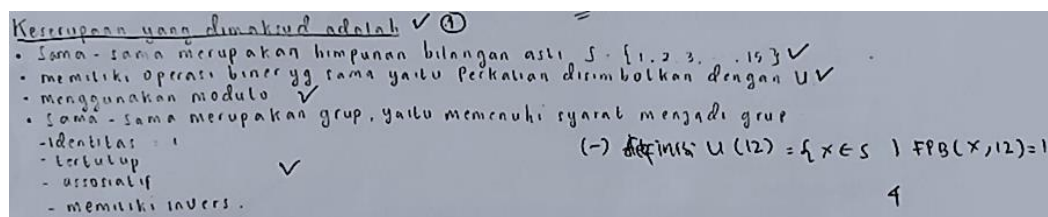 Keserupaan yang dimaksud adalah ✓ ①
• Sama-sama merupakan himpunan bilangan asli S = {1, 2, 3, ... 15} ✓
• memiliki operasi biner yg sama yaitu Perkalian disimbolkan dengan U ✓
• menggunakan modulo ✓
• Sama-sama merupakan grup, yaitu memenuhi syarat menjadi grup
- identitas = 1
- tertutup
- assosiatif ✓
- memiliki invers.
(-) definisi U(12) = {x ∈ S | FPB(x, 12) = 1
4